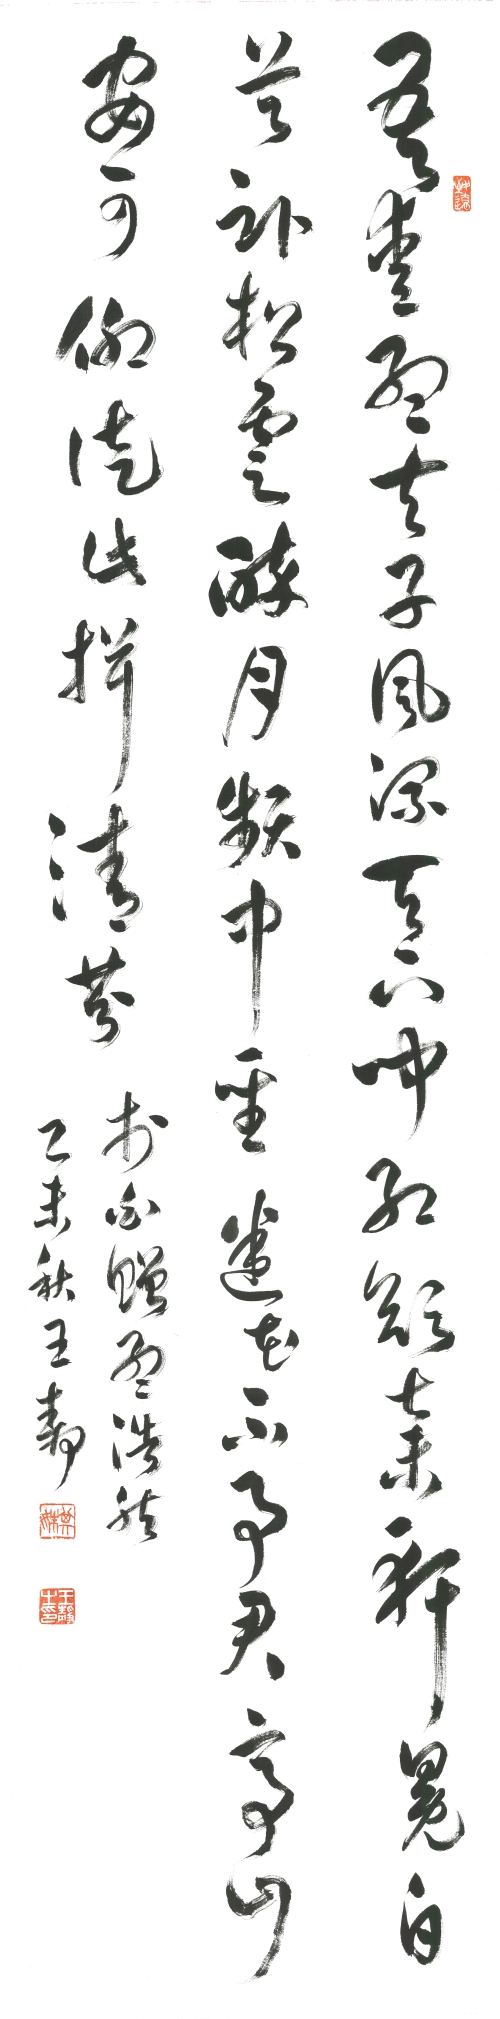 吾爱孟夫子风流天下闻红颜弃轩冕白
首卧松云醉月频中圣迷花不事君高山
安可仰徒此揖清芬
李白赠孟浩然
乙未秋王静